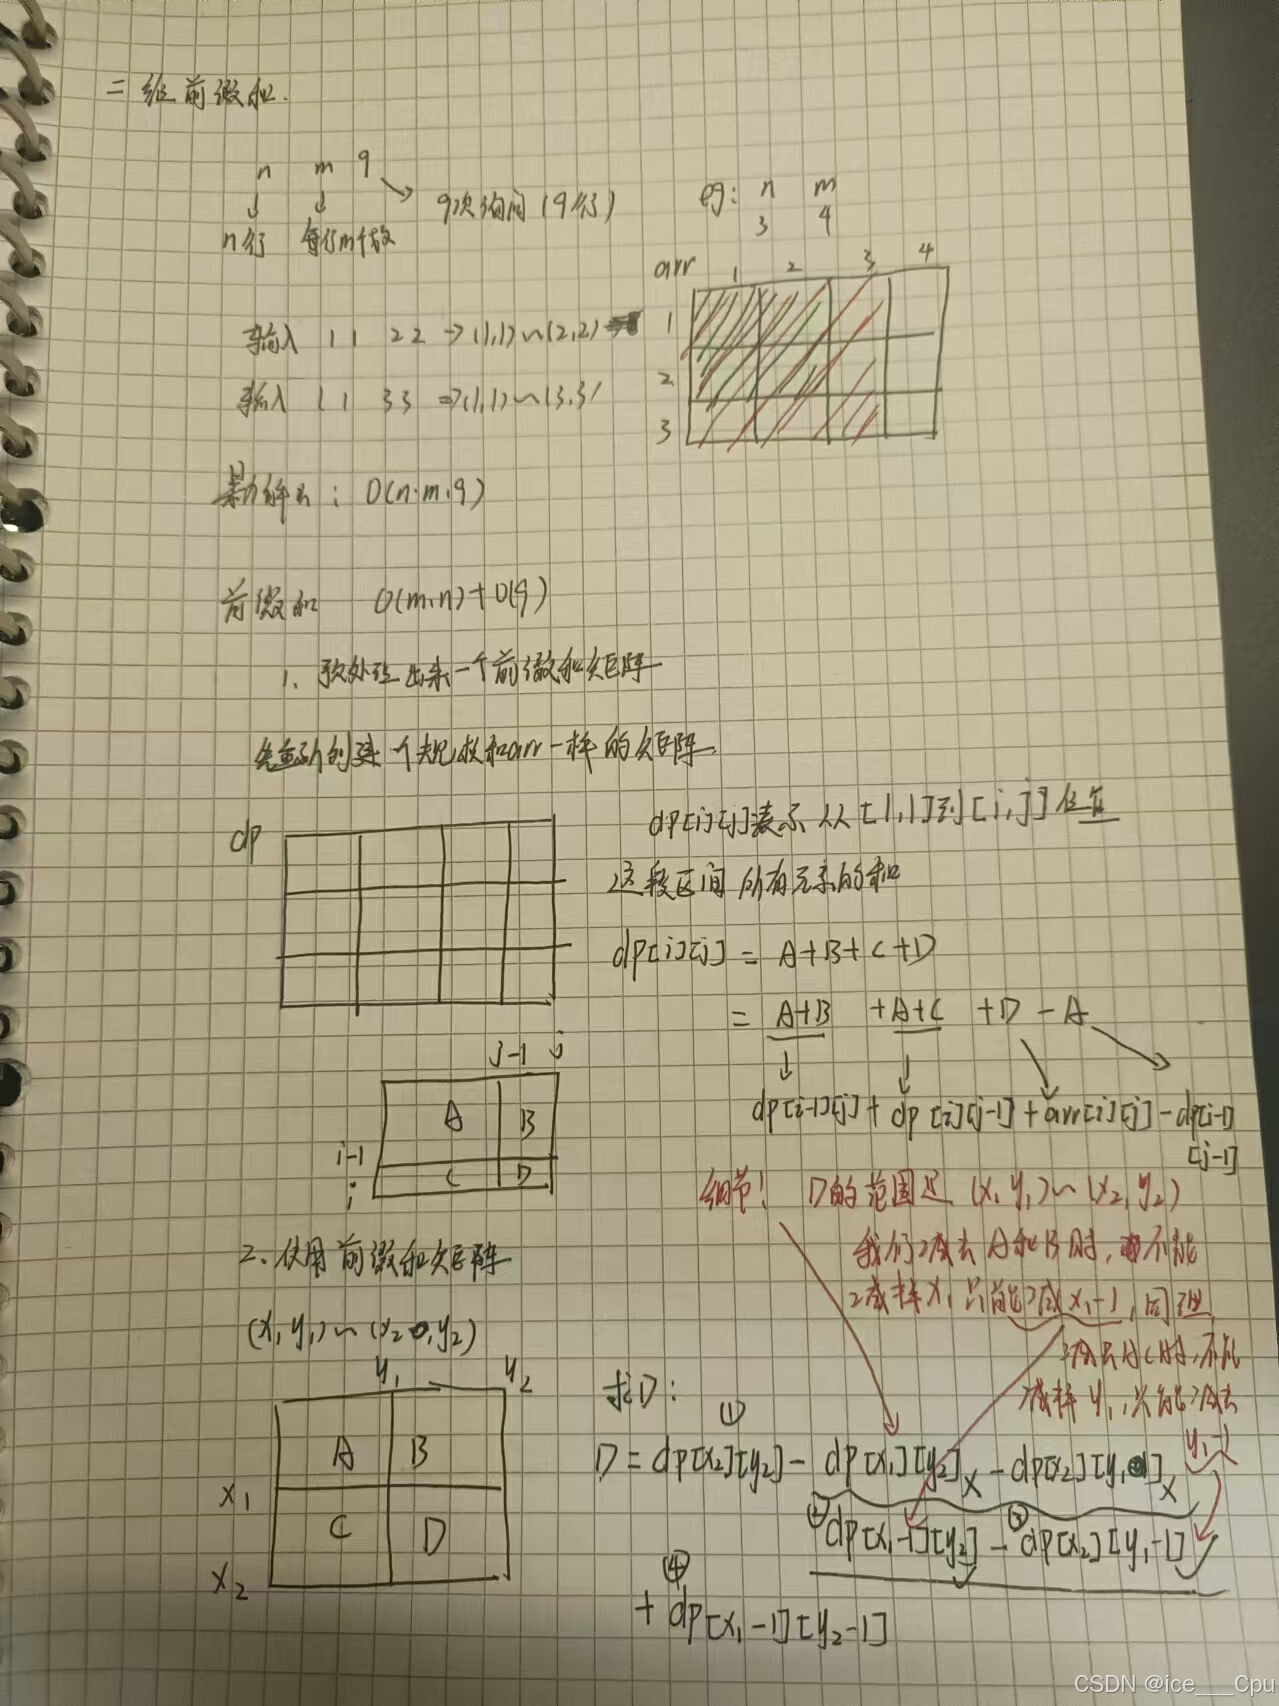 二维前缀和.
n m q
n行 每行m个数 q次询问 (q行)
eg: n m
3 4
arr 1 2 3 4
1
2
3
输入 1 1 2 2 → (1,1)~(2,2)
输入 1 1 3 3 ⇒ (1,1)~(3,3)
暴力解法: O(n·m·q)
前缀和 O(m·n)+O(q)
1、预处理出来一个前缀和矩阵
先重新创建一个规模和arr一样的矩阵
dp
dp[i][j]表示从[1,1]到[i,j]位置
这段区间所有元素的和
dp[i][j] = A+B+C+D
= A+B +A+C +D -A
dp[i-1][j] + dp[i][j-1] + arr[i][j] - dp[i-1]
[j-1]
j-1 j
A B
i-1
C D
i
细节! D的范围是 (x1 y1)~(x2, y2)
我们减去A和B时, 不能
减掉x1 只能减x1-1, 同理,
减去A C时, 不能
减掉y1, 只能减去
y1-1
2、使用前缀和矩阵
(x1 y1)~(x2, y2)
y1 y2
A B
x1
C D
x2
求D:
①
D = dp[x2][y2] - dp[x1][y2] x - dp[x2][y1] x
② dp[x1-1][y2] - ③ dp[x2][y1-1]
④
+ dp[x1-1][y2-1]
CSDN @ice___Cpu